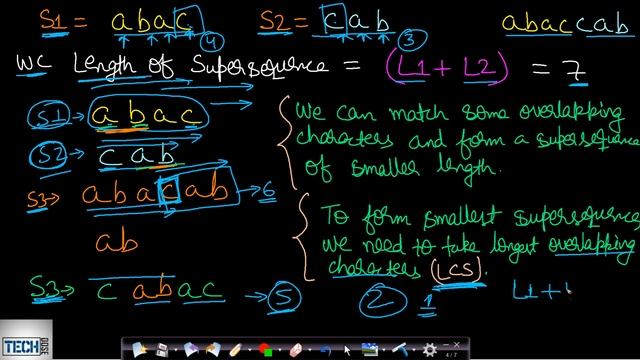 S1 = abac S2 = cab abaccab
④ ③
WC Length of Supersequence = (L1 + L2) = 7
S1 → abac
S2 → cab
S3 → abacab → 6
ab
S3 → cabac → ⑤
We can match some overlapping
characters and form a supersequence
of smaller length.
To form smallest supersequence
we need to take longest overlapping
characters (LCS).
② 1 L1+
TECH
DOSE
4 / 7